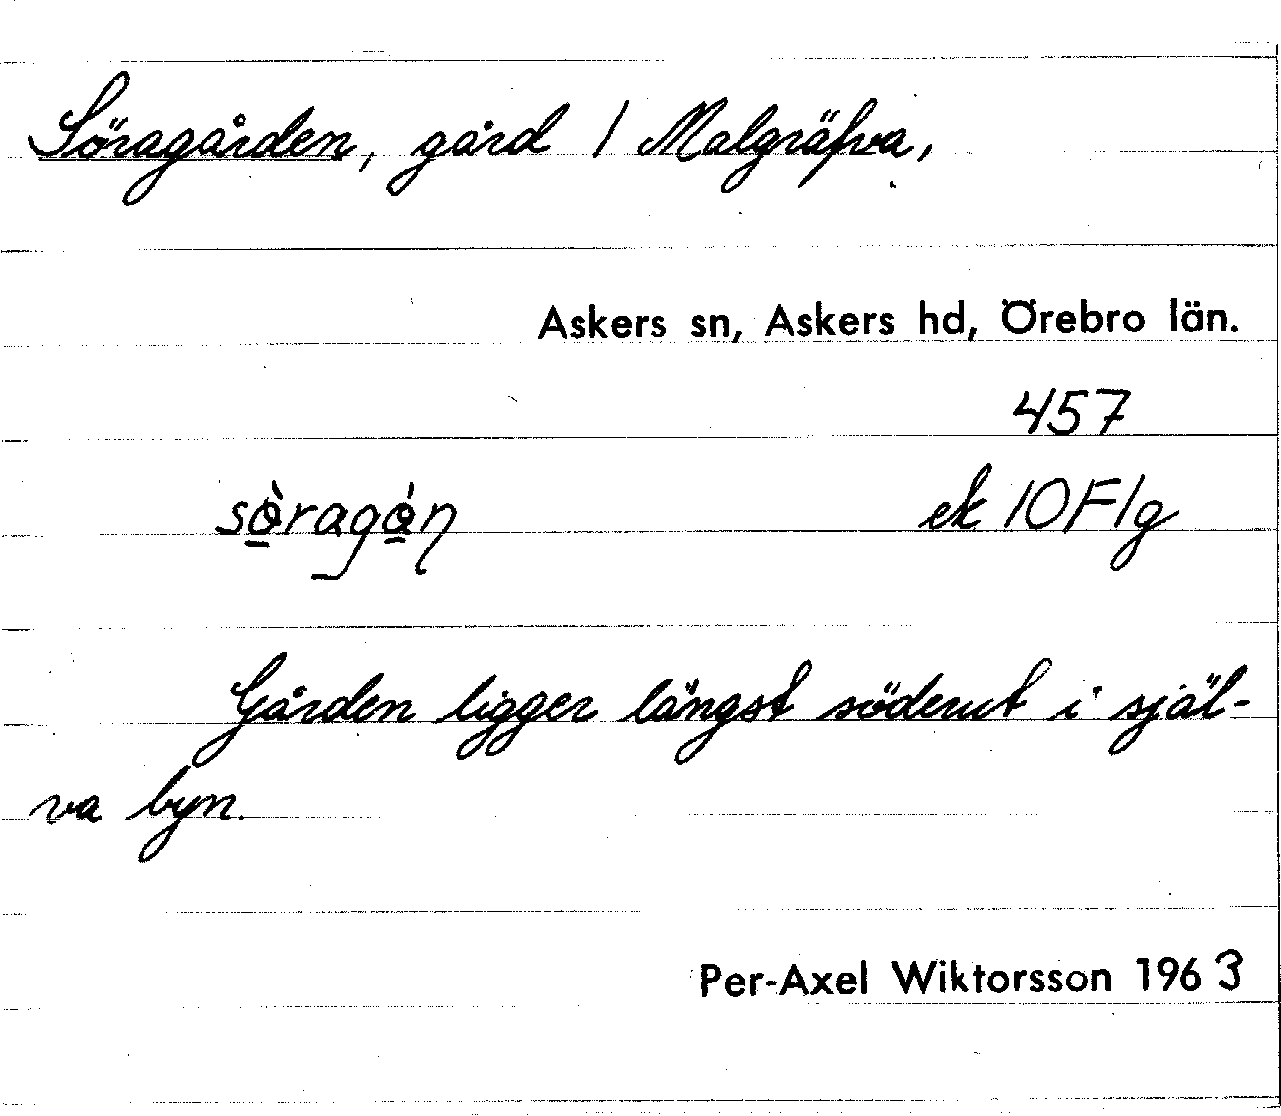 Söragården, gård / Malgräfva,
Askers sn, Askers hd, Örebro län.
457
ek 10F1g
Gården ligger längst söderut i själ-
va byn.
Per-Axel Wiktorsson 1963